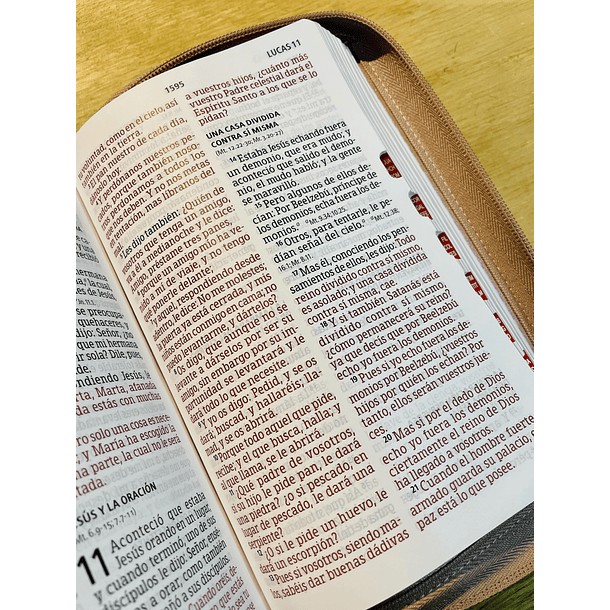 hermana
la cual,
de Jesús,
se preocupa-
quehaceres, y
dijo: Señor, ¿no
que mi hermana
ir sola? Dile, pues,
ndiendo Jesús, le
arta, Marta, afanada
ada estás con muchas
ero solo una cosa es nece-
y María ha escogido la
na parte, la cual no le será
tada.
SÚS Y LA ORACIÓN
(Mt. 6.9-15; 7.7-11)
11 Aconteció que estaba
Jesús orando en un lugar,
y cuando terminó, uno de sus
discípulos le dijo: Señor, ensé-
a orar, como también
enseñó a sus discípulos.
Cuando oréis, de-
1595
LUCAS 11
voluntad, como en el cielo, así
también en la tierra.
El pan nuestro de cada día,
dánoslo hoy.
Y perdónanos nuestros pe-
cados, porque también noso-
tros perdonamos a todos los
que nos deben. Y no nos metas
en tentación, mas líbranos del
Les dijo también: ¿Quién de
vosotros que tenga un amigo,
va a él a medianoche y le dice:
Amigo, préstame tres panes,
porque un amigo mío ha ve-
nido a mí de viaje, y no tengo
qué ponerle delante;
y aquel, respondiendo desde
adentro, le dice: No me molestes;
la puerta ya está cerrada, y mis
niños están conmigo en cama; no
puedo levantarme, y dártelos?
Os digo, que aunque no se
levante a dárselos por ser su
amigo, sin embargo por su im-
portunidad se levantará y le
dará todo lo que necesite.
9 Y yo os digo: Pedid, y se os
dará; buscad, y hallaréis; lla-
mad, y se os abrirá.
10 Porque todo aquel que pide,
recibe; y el que busca, halla; y
al que llama, se le abrirá.
11 ¿Qué padre de vosotros,
si su hijo le pide pan, le dará
una piedra? ¿o si pescado, en
lugar de pescado, le dará una
serpiente?
12 ¿O si le pide un huevo, le
dará un escorpión?
13 Pues si vosotros, siendo ma-
los, sabéis dar buenas dádivas
a vuestros hijos, ¿cuánto más
vuestro Padre celestial dará el
Espíritu Santo a los que se lo
pidan?
UNA CASA DIVIDIDA
CONTRA SÍ MISMA
(Mt. 12.22-30; Mr. 3.20-27)
14 Estaba Jesús echando fuera
un demonio, que era mudo; y
aconteció que salido el demo-
nio, el mudo habló; y la gente
se maravilló.
15 Pero algunos de ellos de-
cían: Por Beelzebú, príncipe de
los demonios, echa fuera los de-
monios. Mt. 9.34; 10.25.
16 Otros, para tentarle, le pe-
dían señal del cielo. Mt. 12.38;
16.1; Mr. 8.11.
17 Mas él, conociendo los pen-
samientos de ellos, les dijo: Todo
reino dividido contra sí mismo,
es asolado; y una casa dividida
contra sí misma, cae.
18 Y si también Satanás está
dividido contra sí mismo,
¿cómo permanecerá su reino?
ya que decís que por Beelzebú
echo yo fuera los demonios.
19 Pues si yo echo fuera los de-
monios por Beelzebú, ¿vuestros
hijos por quién los echan? Por
tanto, ellos serán vuestros jue-
ces.
20 Mas si por el dedo de Dios
echo yo fuera los demonios,
ciertamente el reino de Dios
ha llegado a vosotros.
21 Cuando el hombre fuerte
armado guarda su palacio, en
paz está lo que posee.